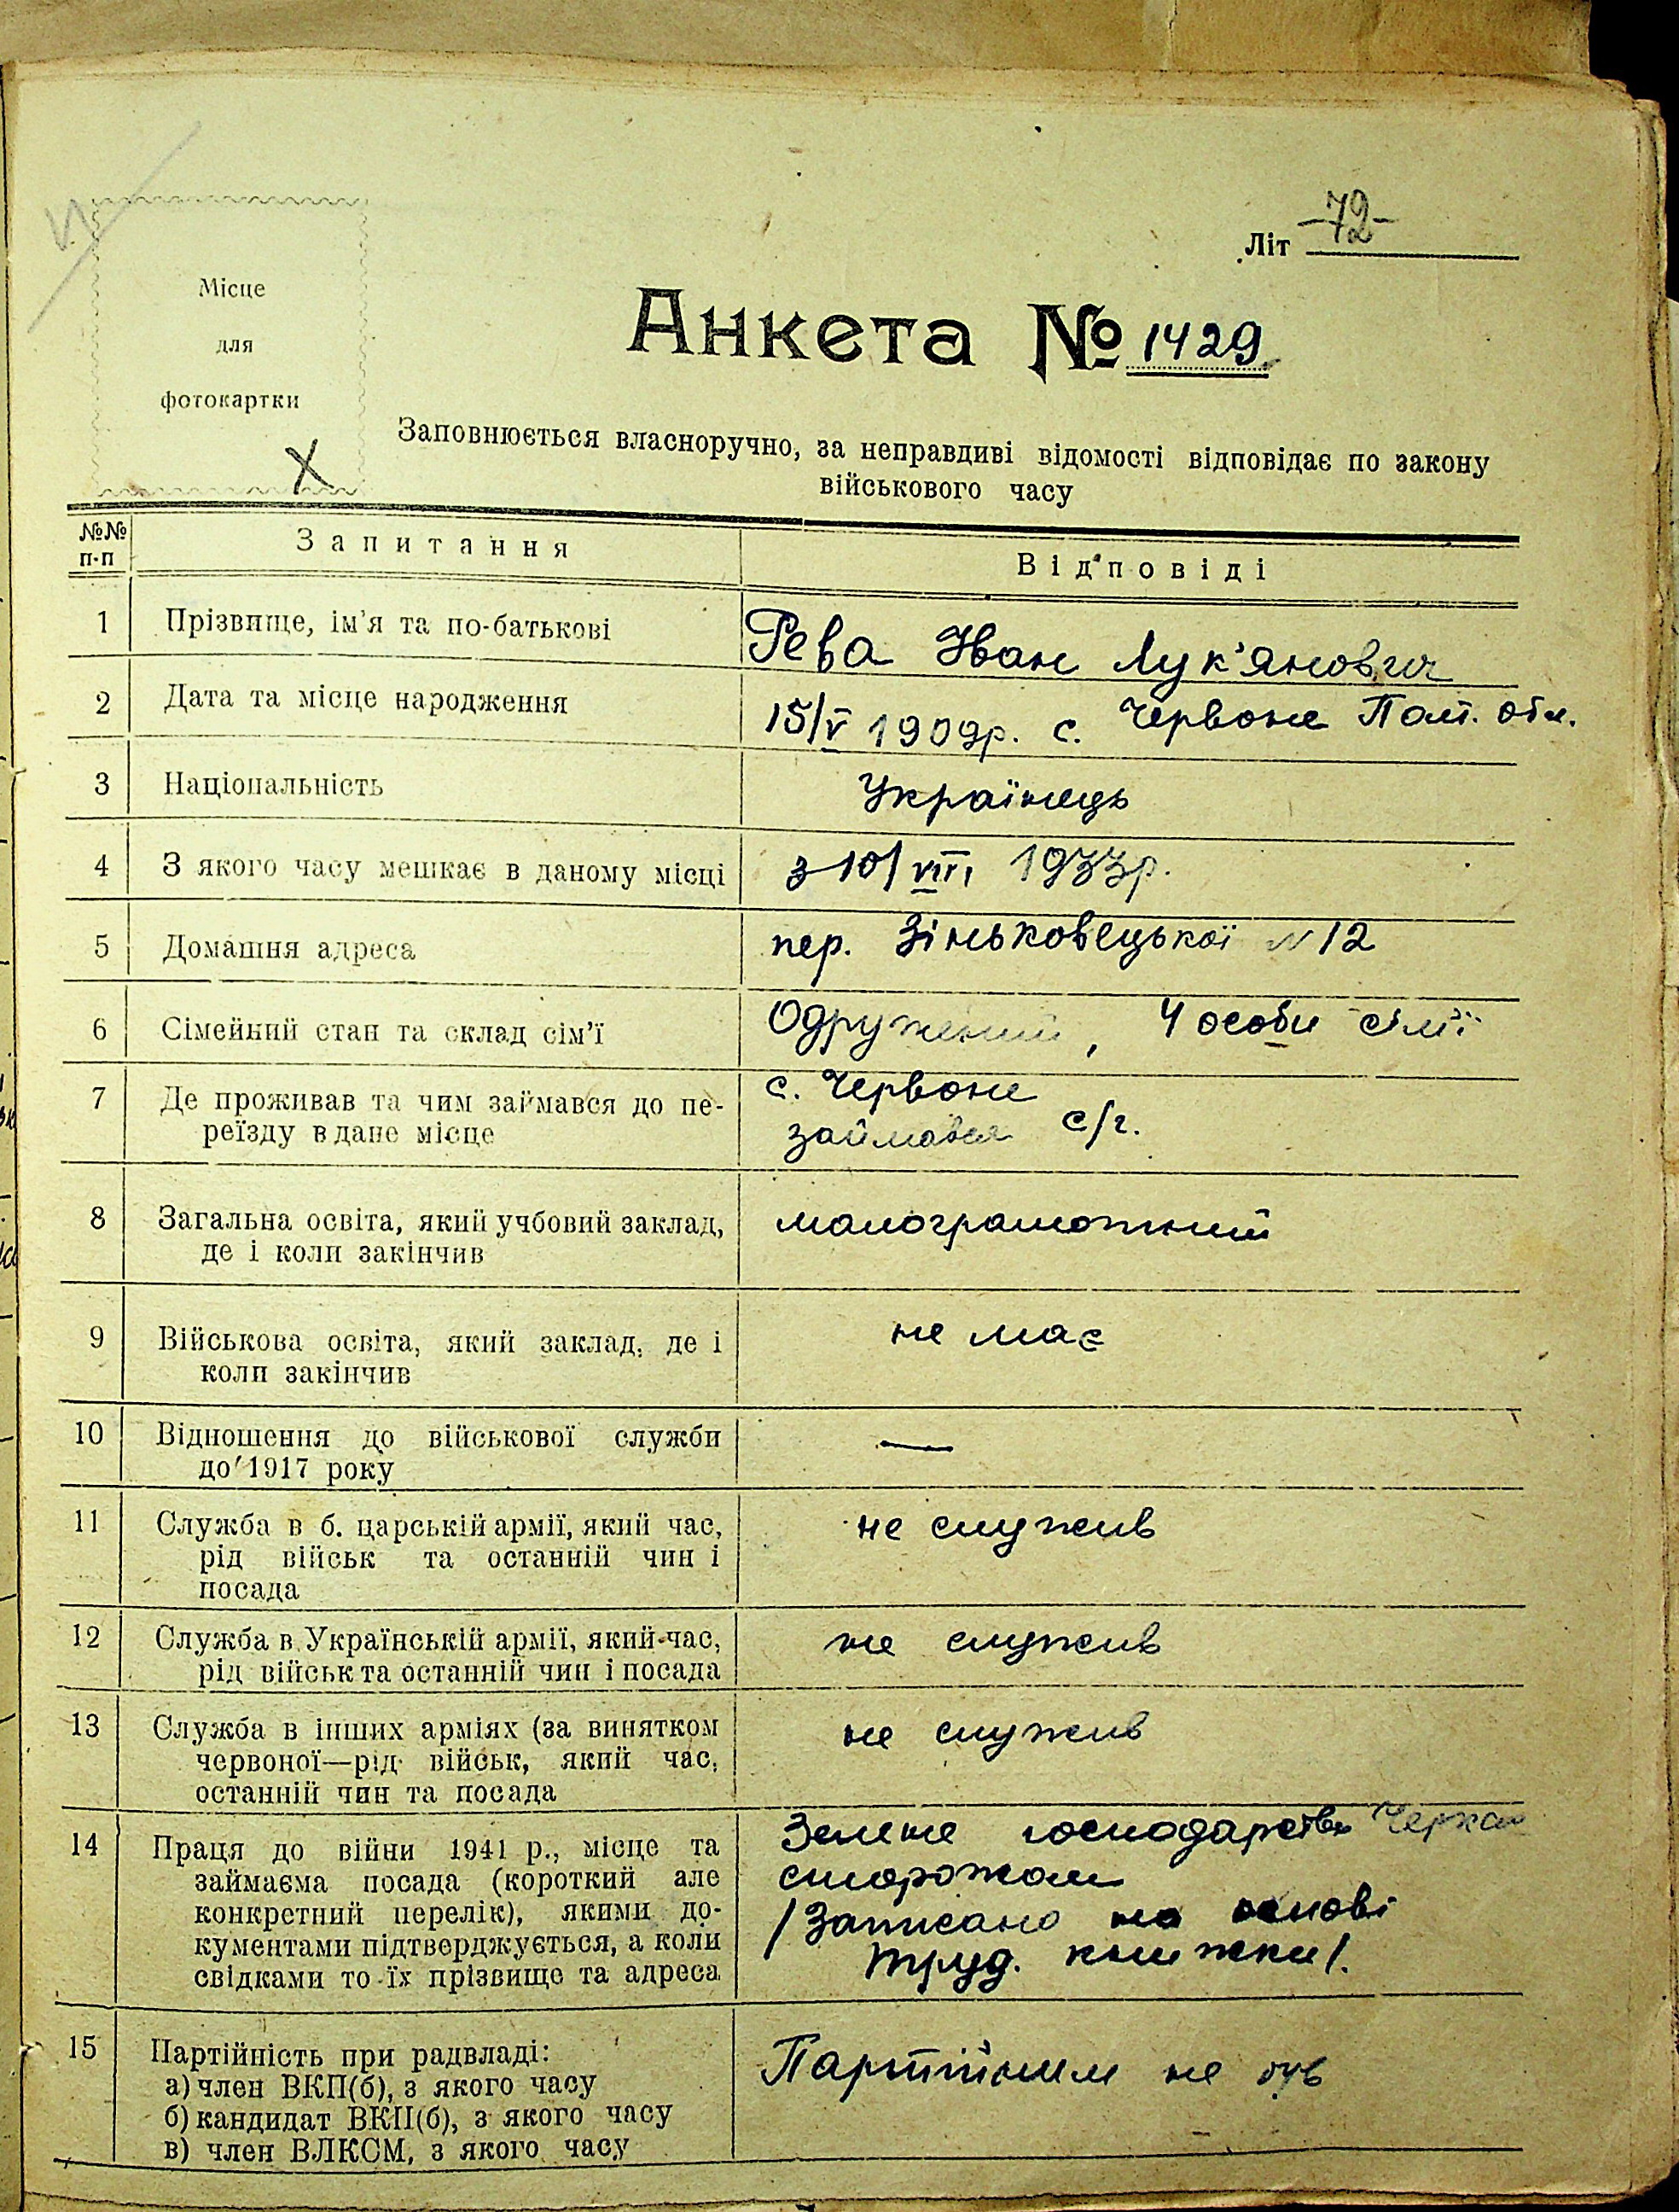 Літ -72-
Місце
для
фотокартки
Анкета № 1429
Заповнюється власноручно, за неправдиві відомості відповідає по закону
військового часу
№№ п-п Запитання Відповіді
1 Прізвище, ім'я та по-батькові Рева Іван Лук'янович
2 Дата та місце народження 15/V 1909р. с. Червоне Полт. обл.
3 Національність Українець
4 З якого часу мешкає в даному місці з 10/VIII 1933р.
5 Домашня адреса пер. Зіньковецької N 12
6 Сімейний стан та склад сім'ї Одружений, 4 особи сім'ї
7 Де проживав та чим займався до пе- с. Червоне
реїзду в дане місце займався с/г.
8 Загальна освіта, який учбовий заклад, малограмотний
де і коли закінчив
9 Військова освіта, який заклад, де і не має
коли закінчив
10 Відношення до військової служби —
до 1917 року
11 Служба в б. царській армії, який час, не служив
рід військ та останній чин і
посада
12 Служба в Українській армії, який час, не служив
рід військ та останній чин і посада
13 Служба в інших арміях (за винятком не служив
червоної—рід військ, який час,
останній чин та посада
14 Праця до війни 1941 р., місце та Зелене господарство
займаєма посада (короткий але сторожом
конкретний перелік), якими до- /Записано на основі
кументами підтверджується, а коли труд. книжки/.
свідками то їх прізвище та адреса
15 Партійність при радвладі: Партійним не був
а) член ВКП(б), з якого часу
б) кандидат ВКП(б), з якого часу
в) член ВЛКСМ, з якого часу